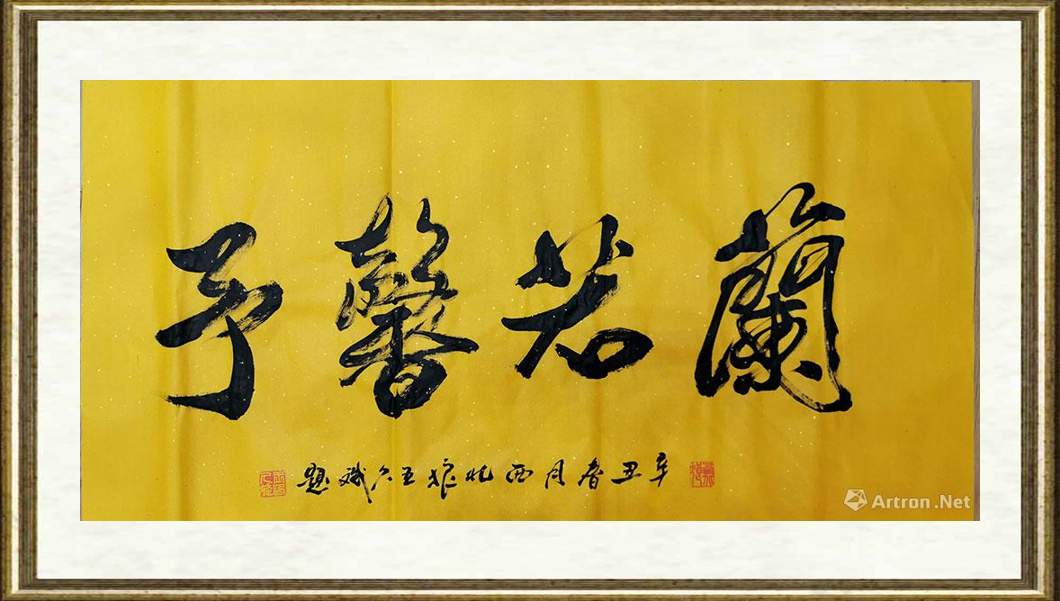 蘭若馨予
辛丑春月西北狼斌題
Artron.Net